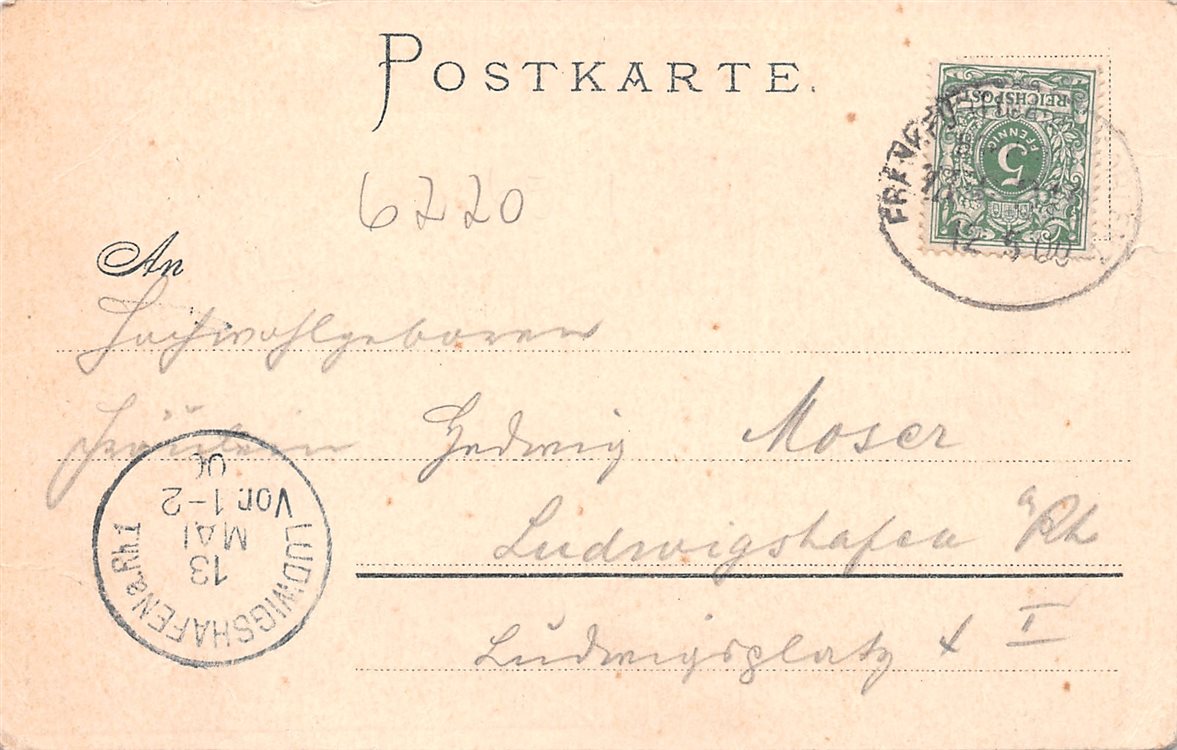 POSTKARTE.
REICHSPOST
5
PFENNIG
12 5 00
6220
An
Hochwohlgeboren
Fräulein Hedwig Moser
Ludwigshafen a/Rh
Ludwigsplatz I
LUDWIGSHAFEN a.Rh.1
13
MAI
Vor.1-2
00